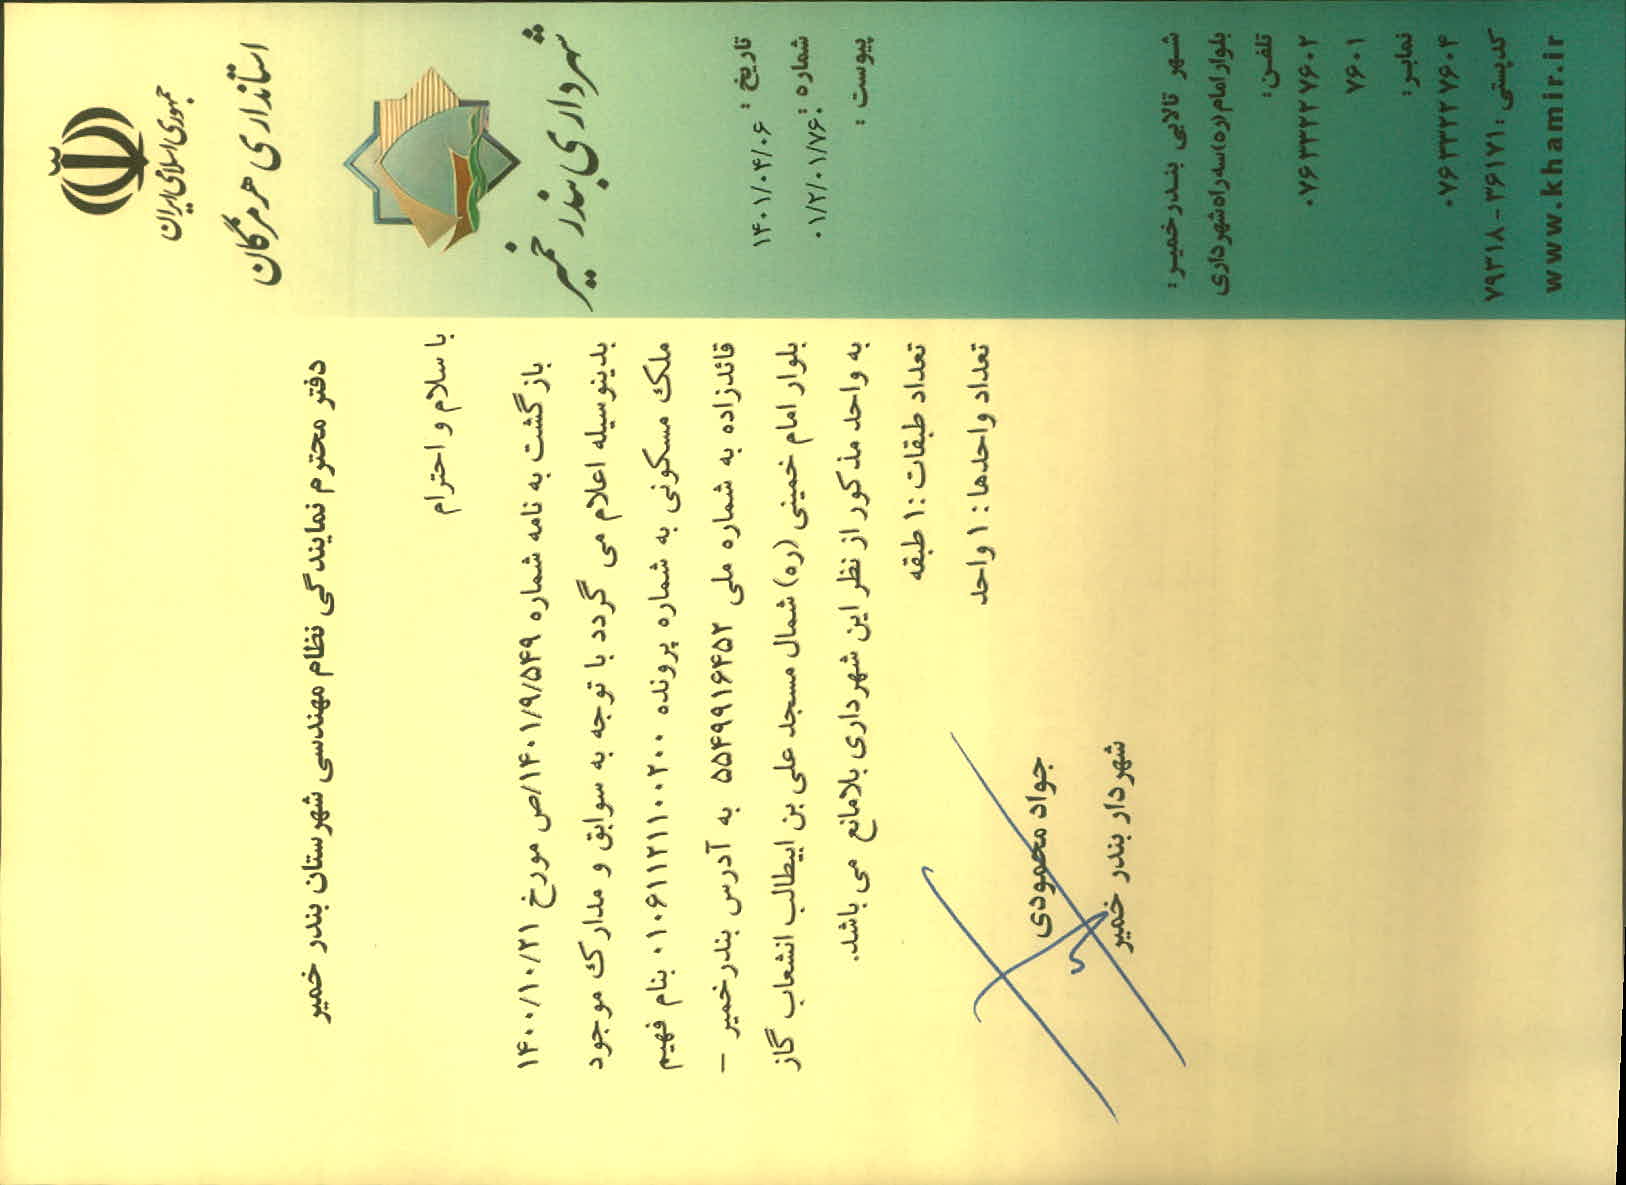 جمهوری اسلامی ایران
استانداری هرمزگان
شهرداری بندر خمیر
تاریخ : ۱۴۰۱/۰۴/۰۶
شماره : ۰۱/۲/۰۱/۷۶
پیوست :
دفتر محترم نمایندگی نظام مهندسی شهرستان بندر خمیر
با سلام و احترام
بازگشت به نامه شماره ۱۴۰۱/۹/۵۴۹/ص مورخ ۱۴۰۰/۱۰/۲۱
بدینوسیله اعلام می گردد با توجه به سوابق و مدارک موجود
ملک مسکونی به شماره پرونده ۰۱۰۶۱۱۲۱۱۰۰۲۰۰ بنام فهیم
قائدزاده به شماره ملی ۵۵۴۹۹۱۶۴۵۲ به آدرس بندرخمیر –
بلوار امام خمینی (ره) شمال مسجد علی بن ابیطالب انشعاب گاز
به واحد مذکور از نظر این شهرداری بلامانع می باشد.
تعداد طبقات : ۱ طبقه
تعداد واحدها : ۱ واحد
جواد محمودی
شهردار بندر خمیر
شهر تالابی بندرخمیر :
بلوار امام (ره) سه راه شهرداری
تلفن :
۰۷۶۳۳۲۲۷۶۰۲
۷۶۰۱
نمابر :
۰۷۶۳۳۲۲۷۶۰۴
کدپستی : ۳۶۱۷۱ - ۷۹۳۱۸
www.khamir.ir